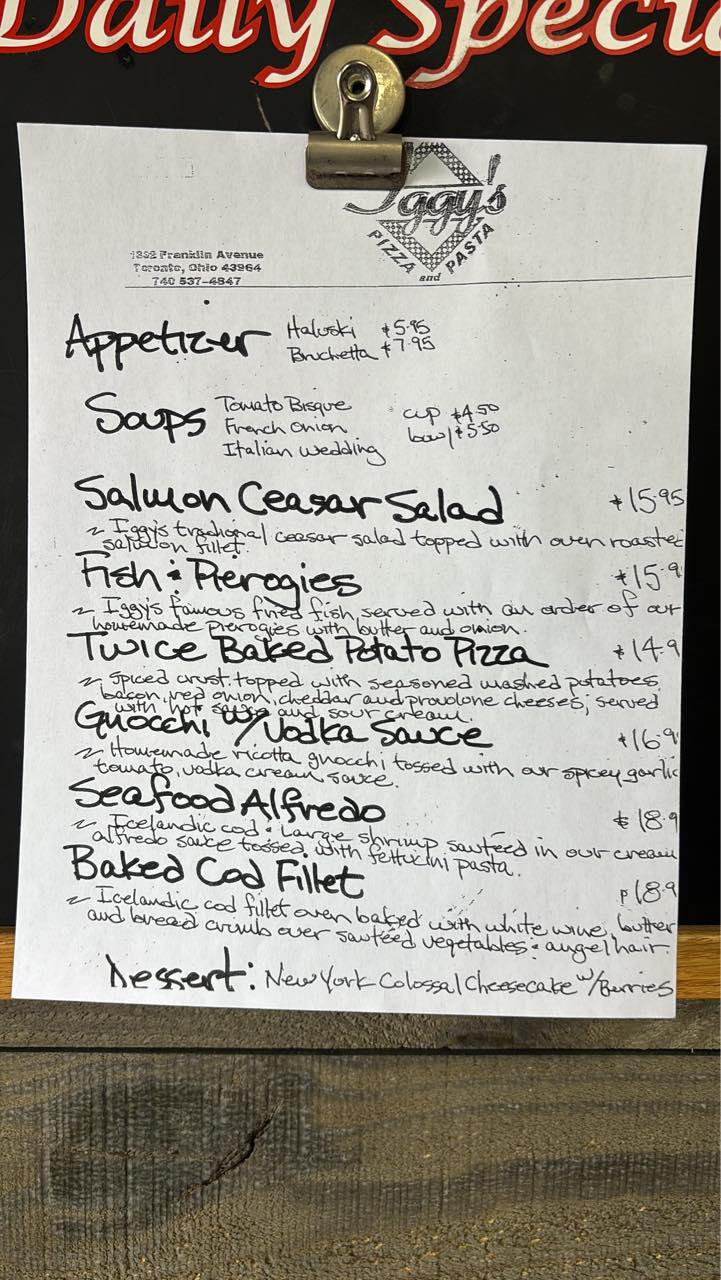 Daily Specia
Iggy's
PIZZA and PASTA
1392 Franklin Avenue
Toronto, Ohio 43964
740 537-4847
Appetizer
Haluski $5.95
Bruchetta $7.95
Soups
Tomato Bisque
French Onion
Italian Wedding
cup $4.50
bowl $5.50
Salmon Ceasar Salad $15.95
~ Iggy's tradional ceasar salad topped with oven roasted
salmon fillet.
Fish & Pierogies $15.9
~ Iggy's famous fried fish served with an order of our
homemade pierogies with butter and onion.
Twice Baked Potato Pizza $14.9
~ Spiced crust topped with seasoned mashed potatoes,
bacon, red onion, cheddar and provolone cheeses; served
with hot sauce and sour cream.
Gnocchi w/Vodka Sauce $16.9
~ Homemade ricotta gnocchi tossed with our spicey garlic
tomato, vodka cream sauce.
Seafood Alfredo $18.9
~ Icelandic cod & Large shrimp sautéed in our cream
alfredo sauce tossed with fettucini pasta.
Baked Cod Fillet $18.9
~ Icelandic cod fillet oven baked with white wine, butter
and bread crumb over sautéed vegetables & angel hair.
Dessert: New York Colossal Cheesecake w/Berries